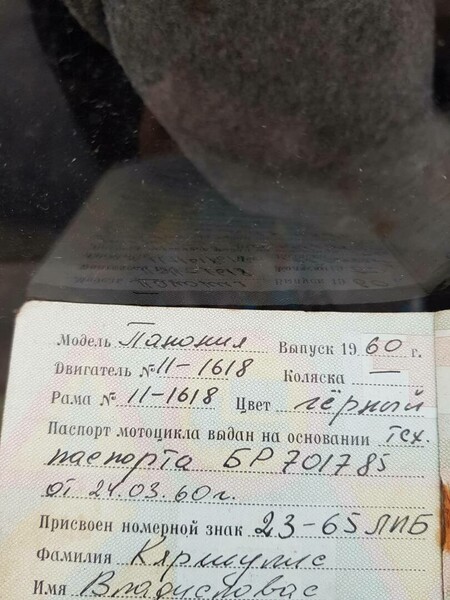 Модель Панония Выпуск 1960 г.
Двигатель № 11-1618 Коляска —
Рама № 11-1618 Цвет чёрный
Паспорт мотоцикла выдан на основании тех.
паспорта БР 701785
от 24.03.60г.
Присвоен номерной знак 23-65 ЛПБ
Фамилия Кяршулис
Имя Владисловас